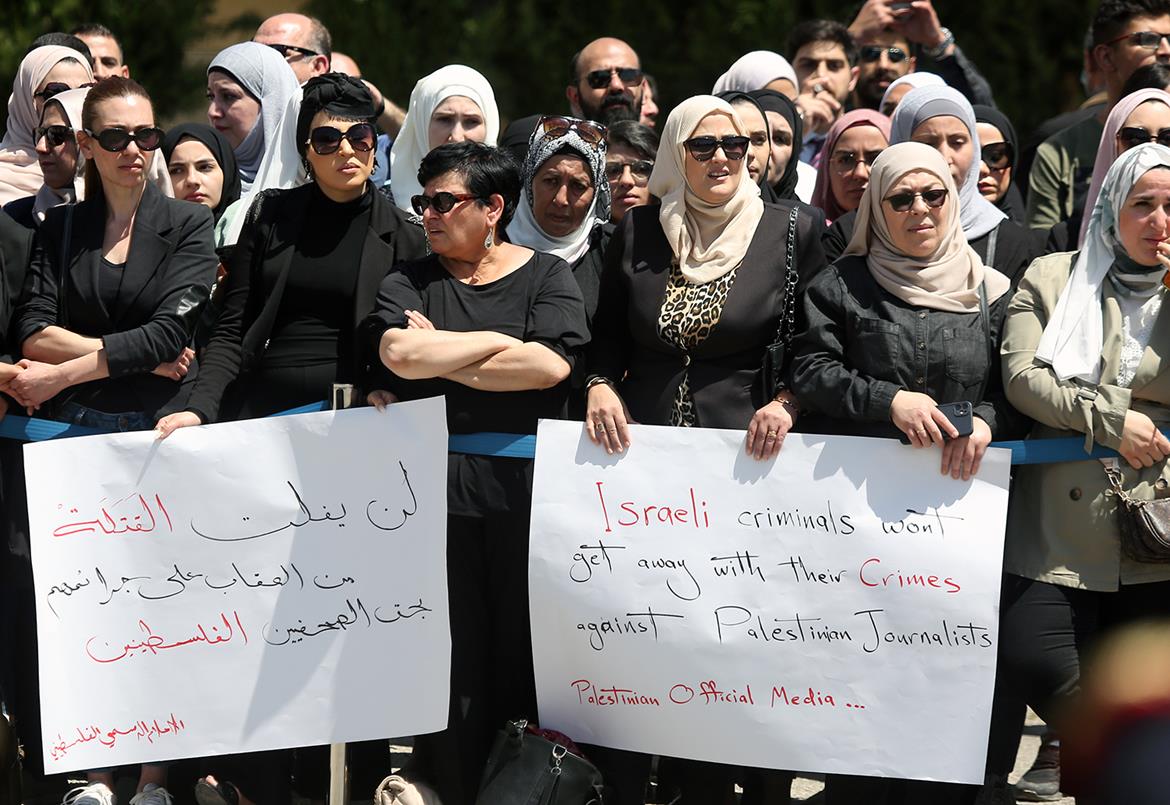 لن يفلت القَتَلَةْ
من العقاب على جرائمهم
بحق الصحفيين الفلسطينيين
الإعلام الرسمي الفلسطيني
Israeli criminals wont
get away with their Crimes
against Palestinian Journalists
Palestinian Official Media ...